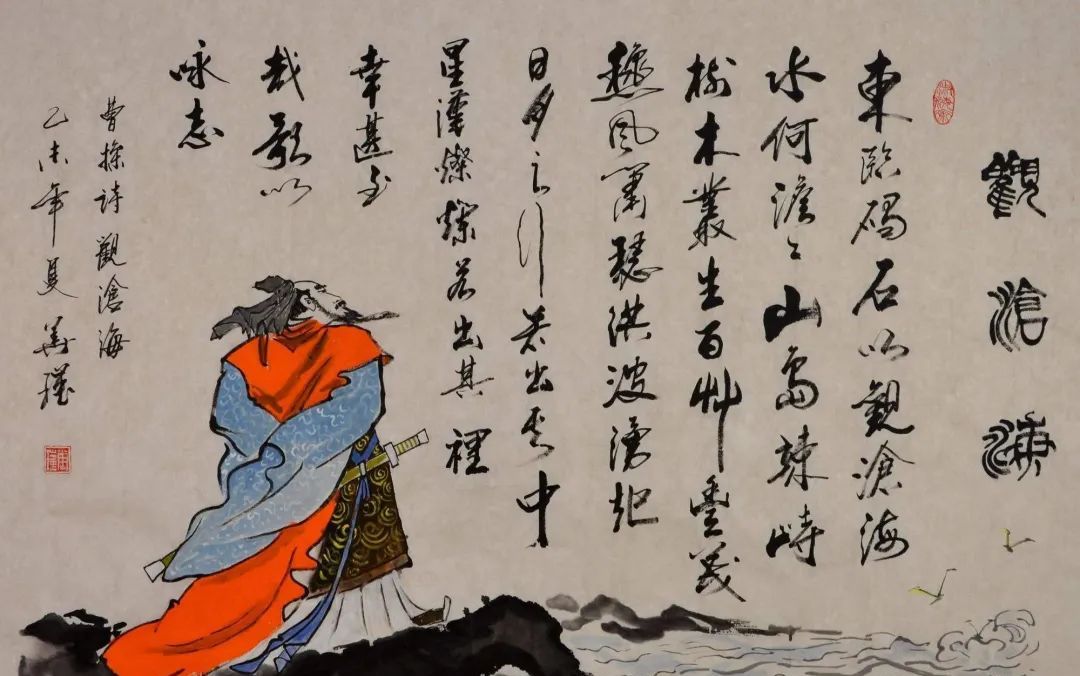 觀滄海
東臨碣石以觀滄海
水何澹〻山島竦峙
樹木叢生百艸豐茂
風蕭瑟洪波湧起
日月之行若出其中
星漢燦爛若出其裡
幸甚至
哉歌以
咏志
曹操詩 觀滄海
乙未年夏